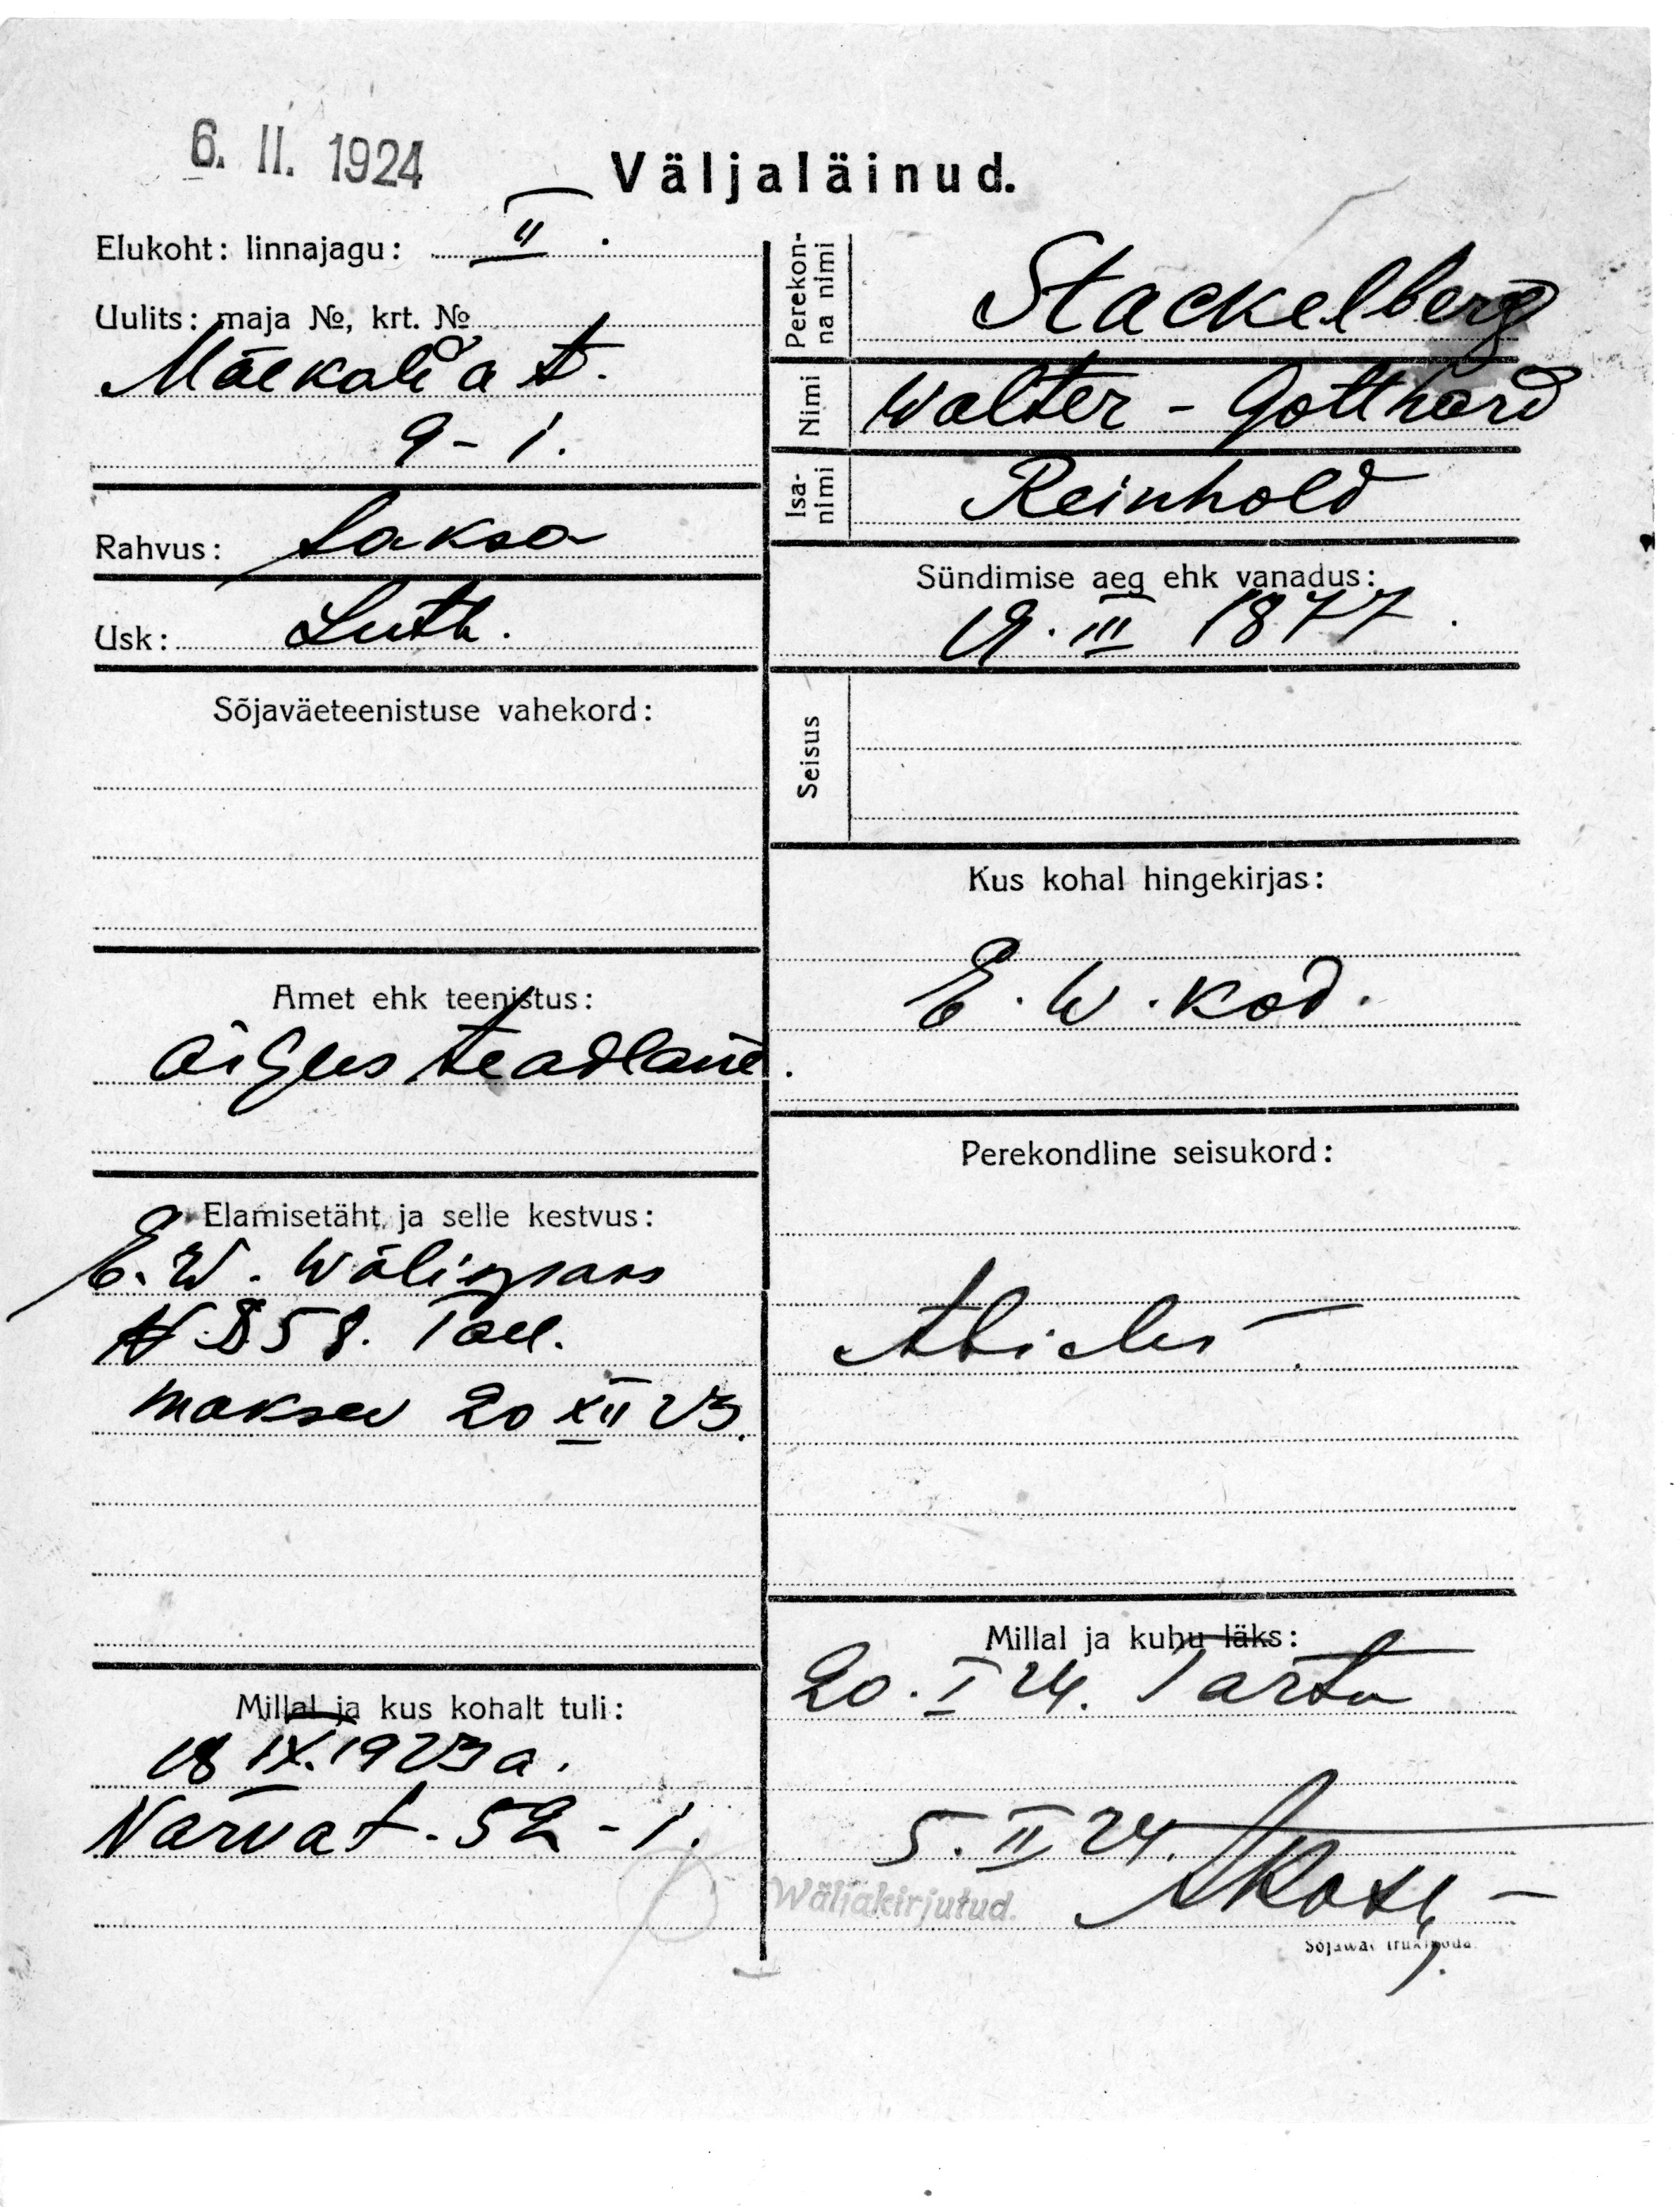 6. II. 1924
Väljaläinud.
Elukoht: linnajagu: II.
Uulits: maja №, krt. №
Mäekalda t.
9-1.
Rahvus: Saksa
Usk: Luth.
Sõjaväeteenistuse vahekord:
Amet ehk teenistus:
Õigusteadlane.
Elamisetäht ja selle kestvus:
E.W. Wälispass
N 858. Tall.
maksev 20 XII 23.
Millal ja kus kohalt tuli:
18 IX. 1923 a.
Narva t. 52-1.
Perekon-
na nimi
Stackelberg
Nimi
Walter - Gotthard
Isa-
nimi
Reinhold
Sündimise aeg ehk vanadus:
19. III 1877.
Seisus
Kus kohal hingekirjas:
E.W. kod.
Perekondline seisukord:
Abielus
Millal ja kuhu läks:
20. I 24. Tartu
5. II 24.
Wäljakirjutud.
Sõjawäe trükikoda